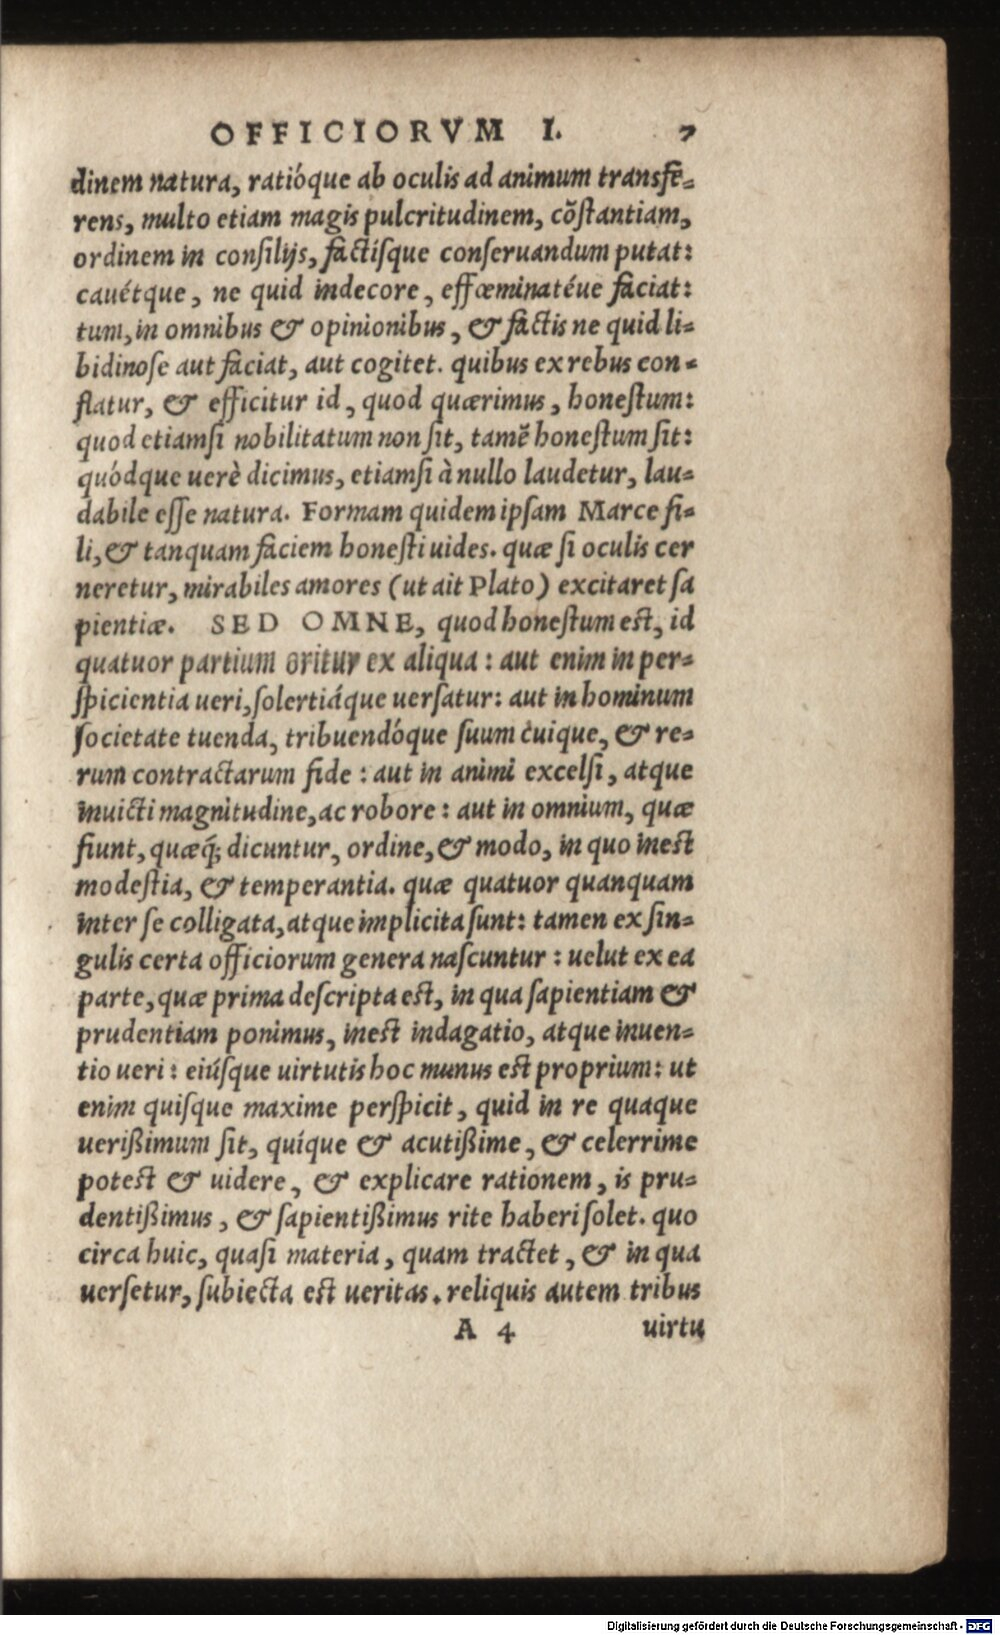 OFFICIORVM I. 7
dinem natura, ratióque ab oculis ad animum transfe-
rens, multo etiam magis pulcritudinem, cōstantiam,
ordinem in consilijs, factísque conseruandum putat:
cauétque, ne quid indecore, effœminatéue faciat:
tum, in omnibus & opinionibus, & factis ne quid li-
bidinose aut faciat, aut cogitet. quibus ex rebus con-
flatur, & efficitur id, quod quærimus, honestum:
quod etiamsi nobilitatum non sit, tamē honestum sit:
quódque uerè dicimus, etiamsi à nullo laudetur, lau-
dabile esse natura. Formam quidem ipsam Marce fi-
li, & tanquam faciem honesti uides. quæ si oculis cer
neretur, mirabiles amores (ut ait Plato) excitaret sa
pientiæ. SED OMNE, quod honestum est, id
quatuor partium oritur ex aliqua: aut enim in per-
spicientia ueri, solertiáque uersatur: aut in hominum
societate tuenda, tribuendóque suum cuique, & re-
rum contractarum fide: aut in animi excelsi, atque
inuicti magnitudine, ac robore: aut in omnium, quæ
fiunt, quæq́; dicuntur, ordine, & modo, in quo inest
modestia, & temperantia. quæ quatuor quanquam
inter se colligata, atque implicita sunt: tamen ex sin-
gulis certa officiorum genera nascuntur: uelut ex ea
parte, quæ prima descripta est, in qua sapientiam &
prudentiam ponimus, inest indagatio, atque inuen-
tio ueri: eiúsque uirtutis hoc munus est proprium: ut
enim quisque maxime perspicit, quid in re quaque
uerißimum sit, quíque & acutißime, & celerrime
potest & uidere, & explicare rationem, is pru-
dentißimus, & sapientißimus rite haberi solet. quo
circa huic, quasi materia, quam tractet, & in qua
uersetur, subiecta est ueritas. reliquis autem tribus
A 4 uirtu
Digitalisierung gefördert durch die Deutsche Forschungsgemeinschaft - DFG